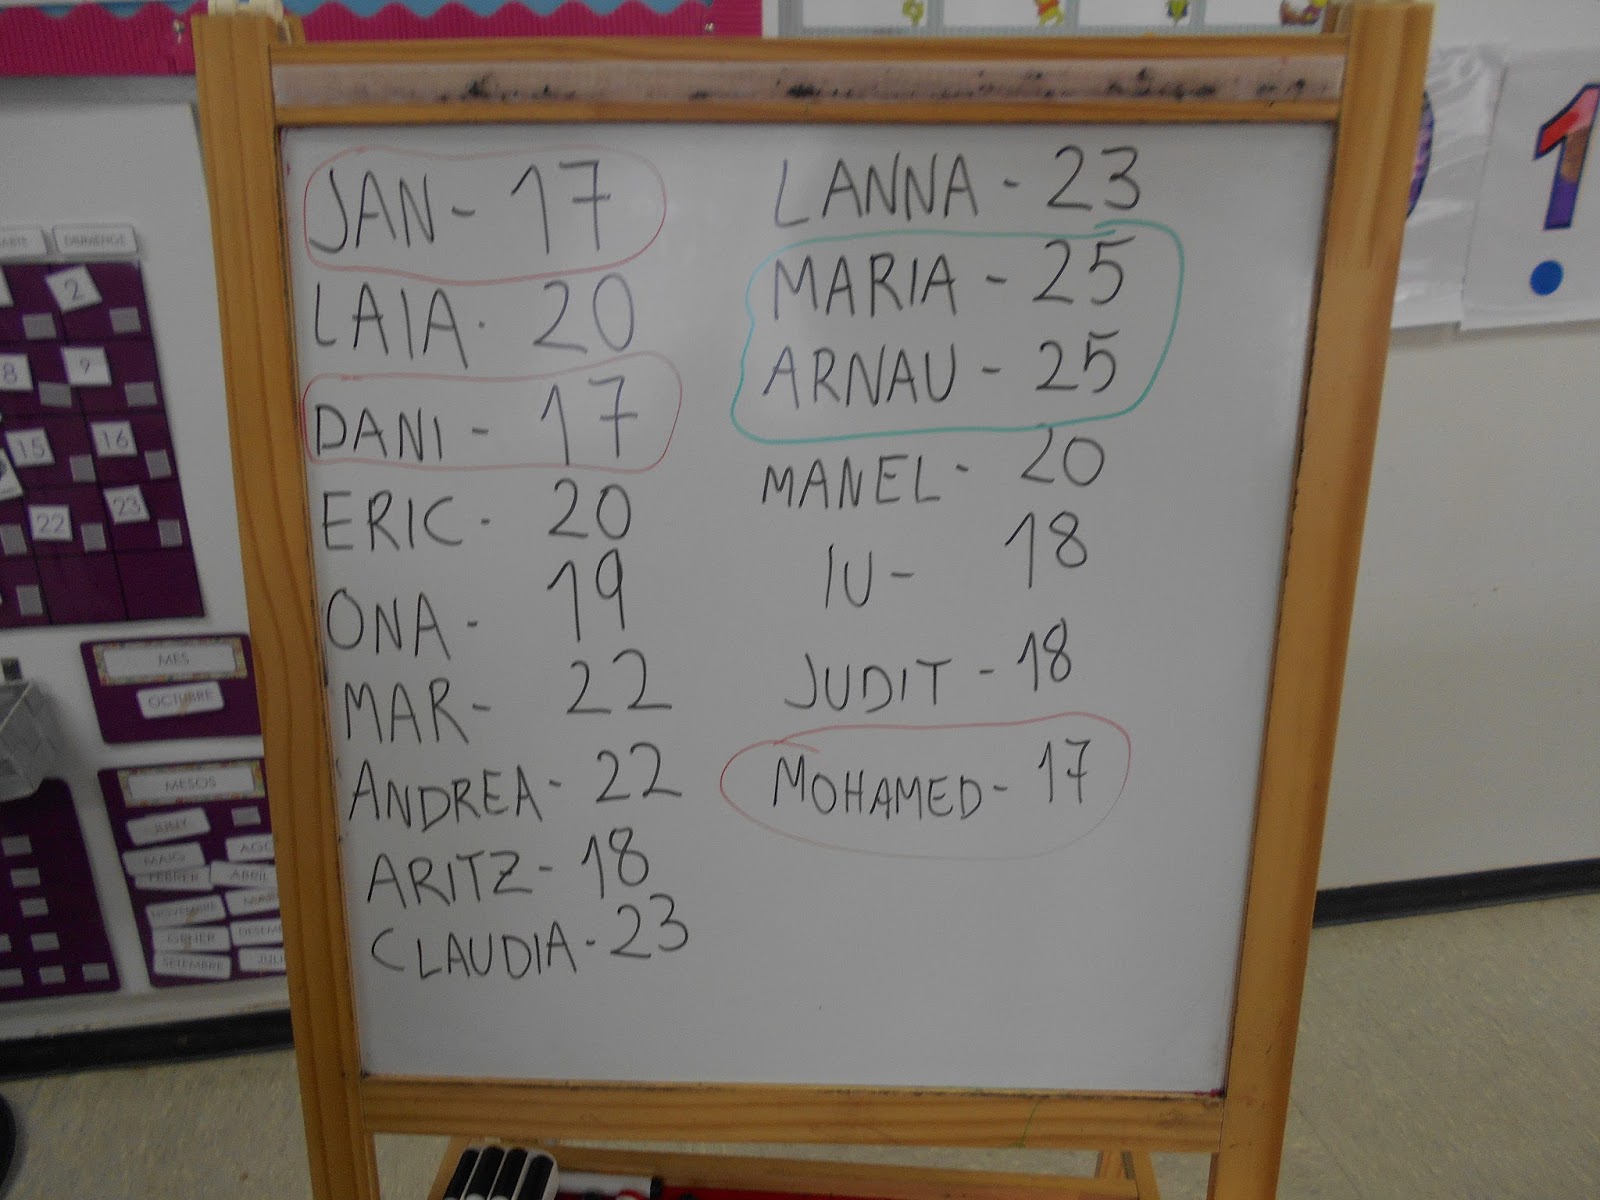 JAN - 17
LAIA - 20
DANI - 17
ERIC - 20
ONA - 19
MAR - 22
ANDREA - 22
ARITZ - 18
CLAUDIA - 23
LANNA - 23
MARIA - 25
ARNAU - 25
MANEL - 20
IU - 18
JUDIT - 18
MOHAMED - 17
DIUMENGE
2
8 9
15 16
22 23
MES
OCTUBRE
MESOS
JUNY
MAIG
FEBRER ABRIL
NOVEMBRE
GENER
SETEMBRE
1